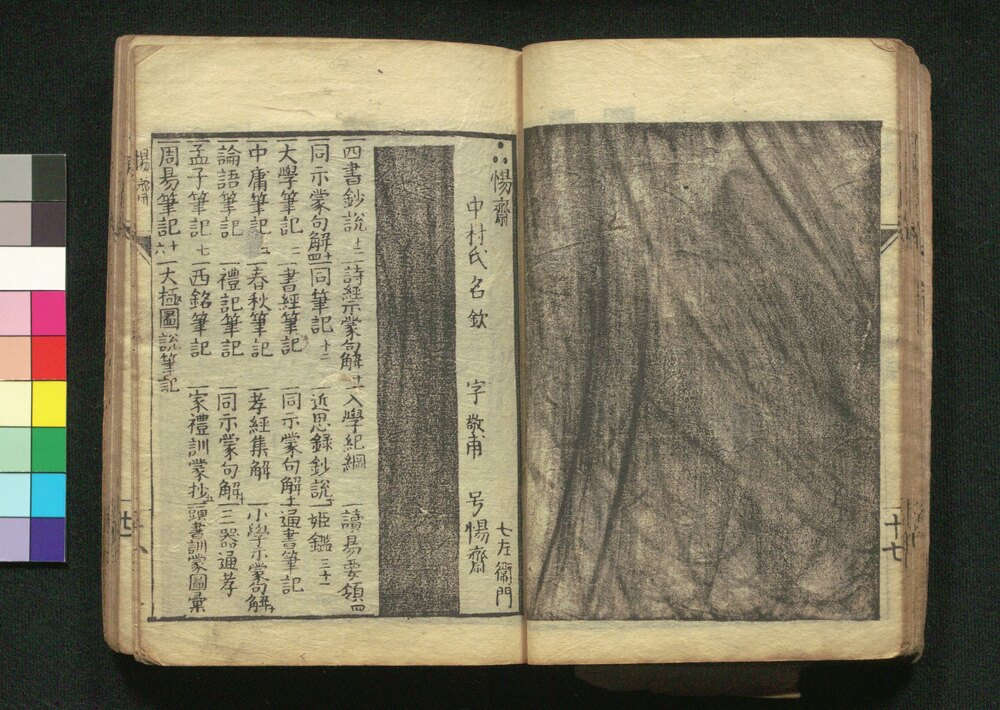 惕齋
中村氏名欽 字敬甫 号惕齋 七左衞門
一四書鈔説 十二 一詩經示蒙句解 一入學紀綱 一讀易要領 四
一同示蒙句解 一同筆記 十二 一近思録鈔説 一姫鑑 三十一
一大學筆記 一書經筆記 一同示蒙句解 一通書筆記
一中庸筆記 一春秋筆記 一孝經集解 一小學示蒙句解
一論語筆記 一禮記筆記 一同示蒙句解 一三器通考
一孟子筆記 七 一西銘筆記 一家禮訓蒙抄 一頭書訓蒙圖彙
一周易筆記 一大極圖説筆記
惕齋
十七